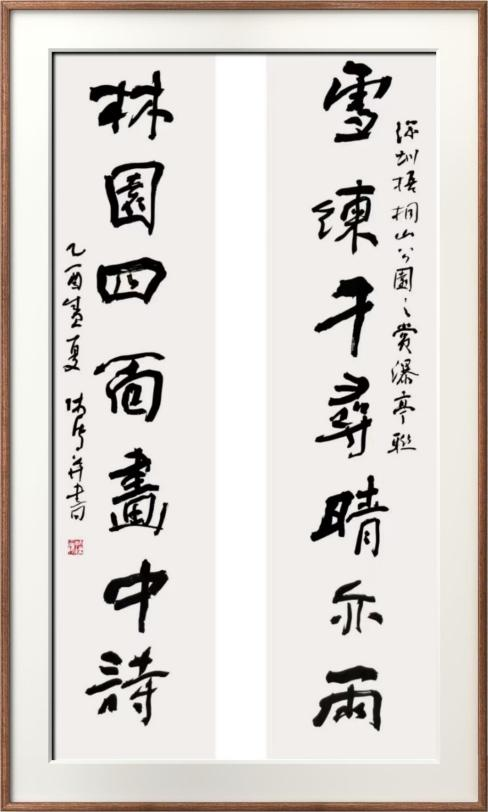 深圳梧桐山公園之賞瀑亭聯
雪練千尋晴亦雨
林園四面畫中詩
乙酉夏 并書